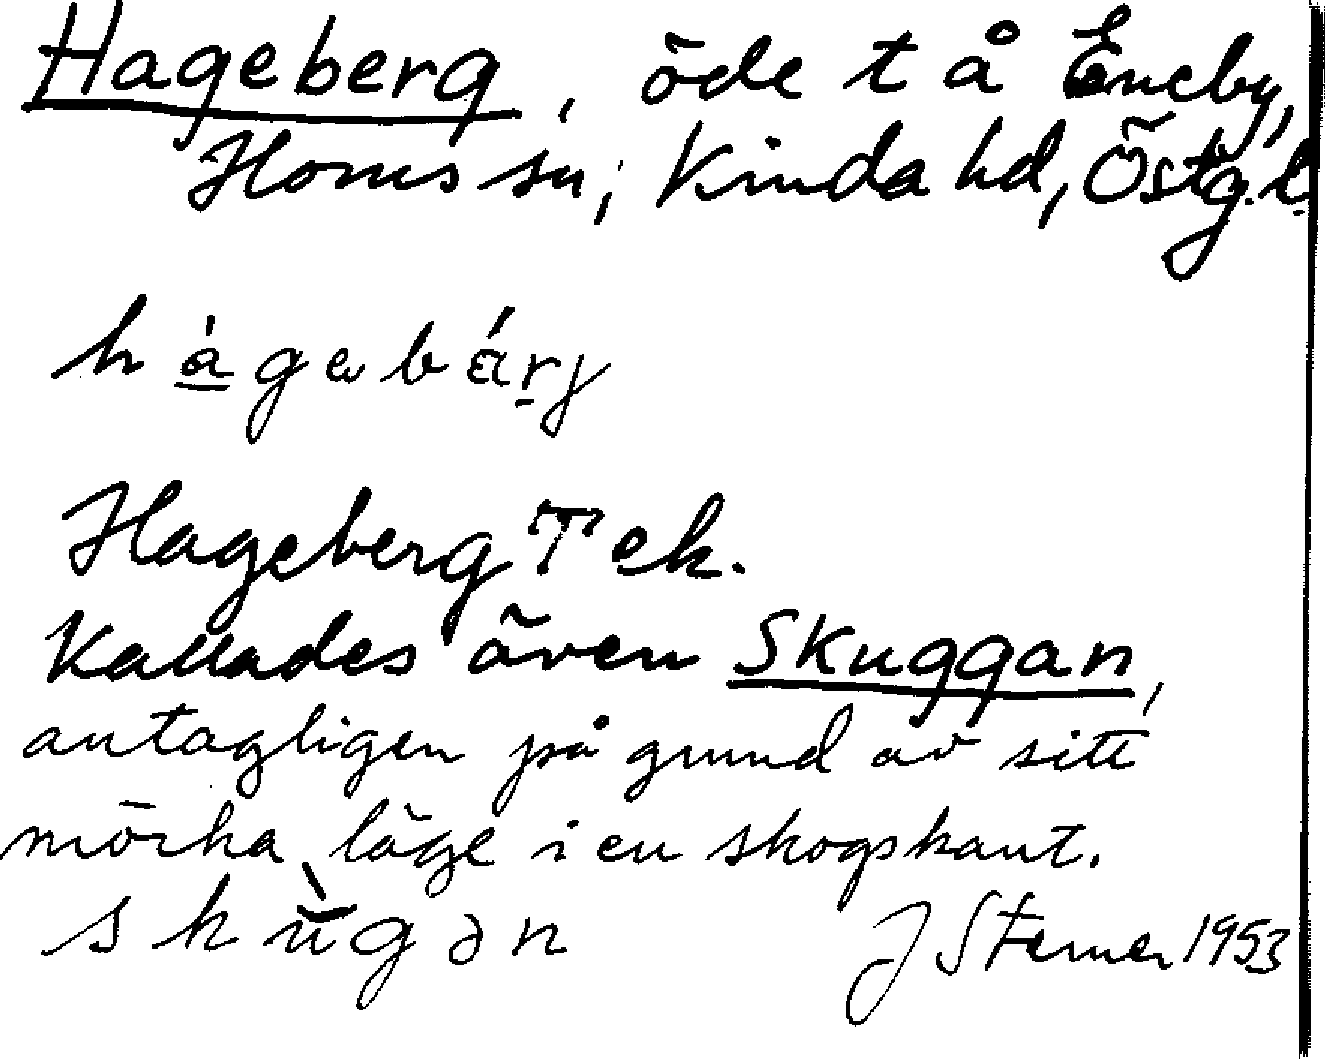 Hageberg, öde t å Eneby,
Horns sn, Kinda hd, Östg.l.
hágebárj
Hageberg T ek.
Kallades även Skuggan,
antagligen på grund av sitt
mörka läge i en skogskant.
skùgən J Sterner 1953